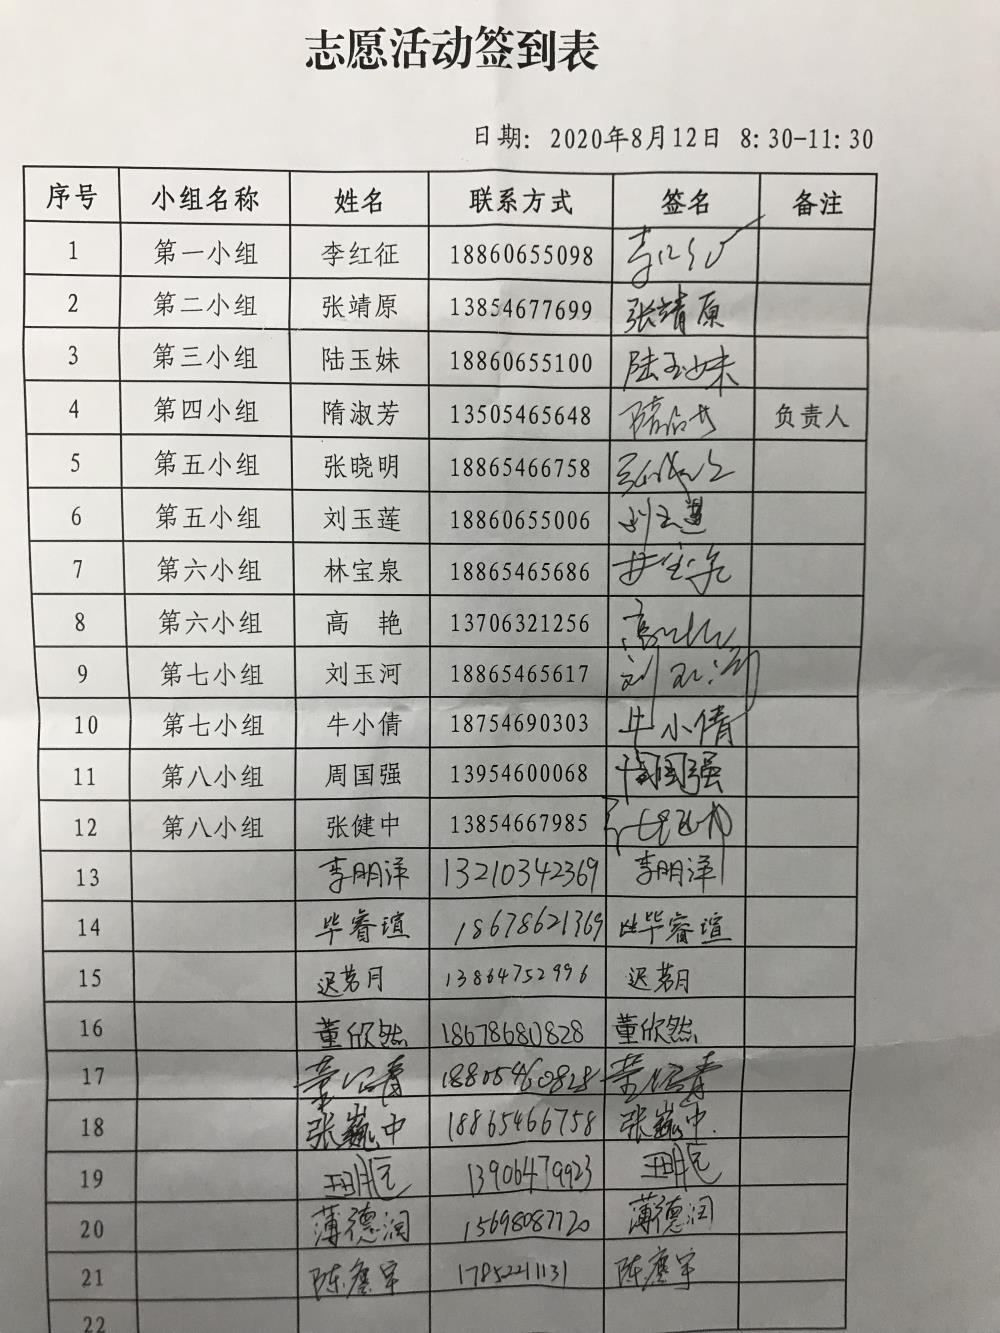 志愿活动签到表
日期: 2020年8月12日 8:30-11:30
序号 小组名称 姓名 联系方式 签名 备注
1 第一小组 李红征 18860655098
2 第二小组 张靖原 13854677699 张靖原
3 第三小组 陆玉妹 18860655100 陆玉妹
4 第四小组 隋淑芳 13505465648 负责人
5 第五小组 张晓明 18865466758
6 第五小组 刘玉莲 18860655006 刘玉莲
7 第六小组 林宝泉 18865465686 林宝泉
8 第六小组 高 艳 13706321256 高艳
9 第七小组 刘玉河 18865465617 刘玉河
10 第七小组 牛小倩 18754690303 牛小倩
11 第八小组 周国强 13954600068 周国强
12 第八小组 张健中 13854667985
13 李朋泽 13210342369 李朋泽
14 毕睿瑄 18678621369 毕睿瑄
15 迟茗月 13864752996 迟茗月
16 董欣然 18678680828 董欣然
17 18805460828
18 张巍中 18865466758 张巍中.
19 13906479923
20 薄德润 15698087720 薄德润
21 17852211131
22